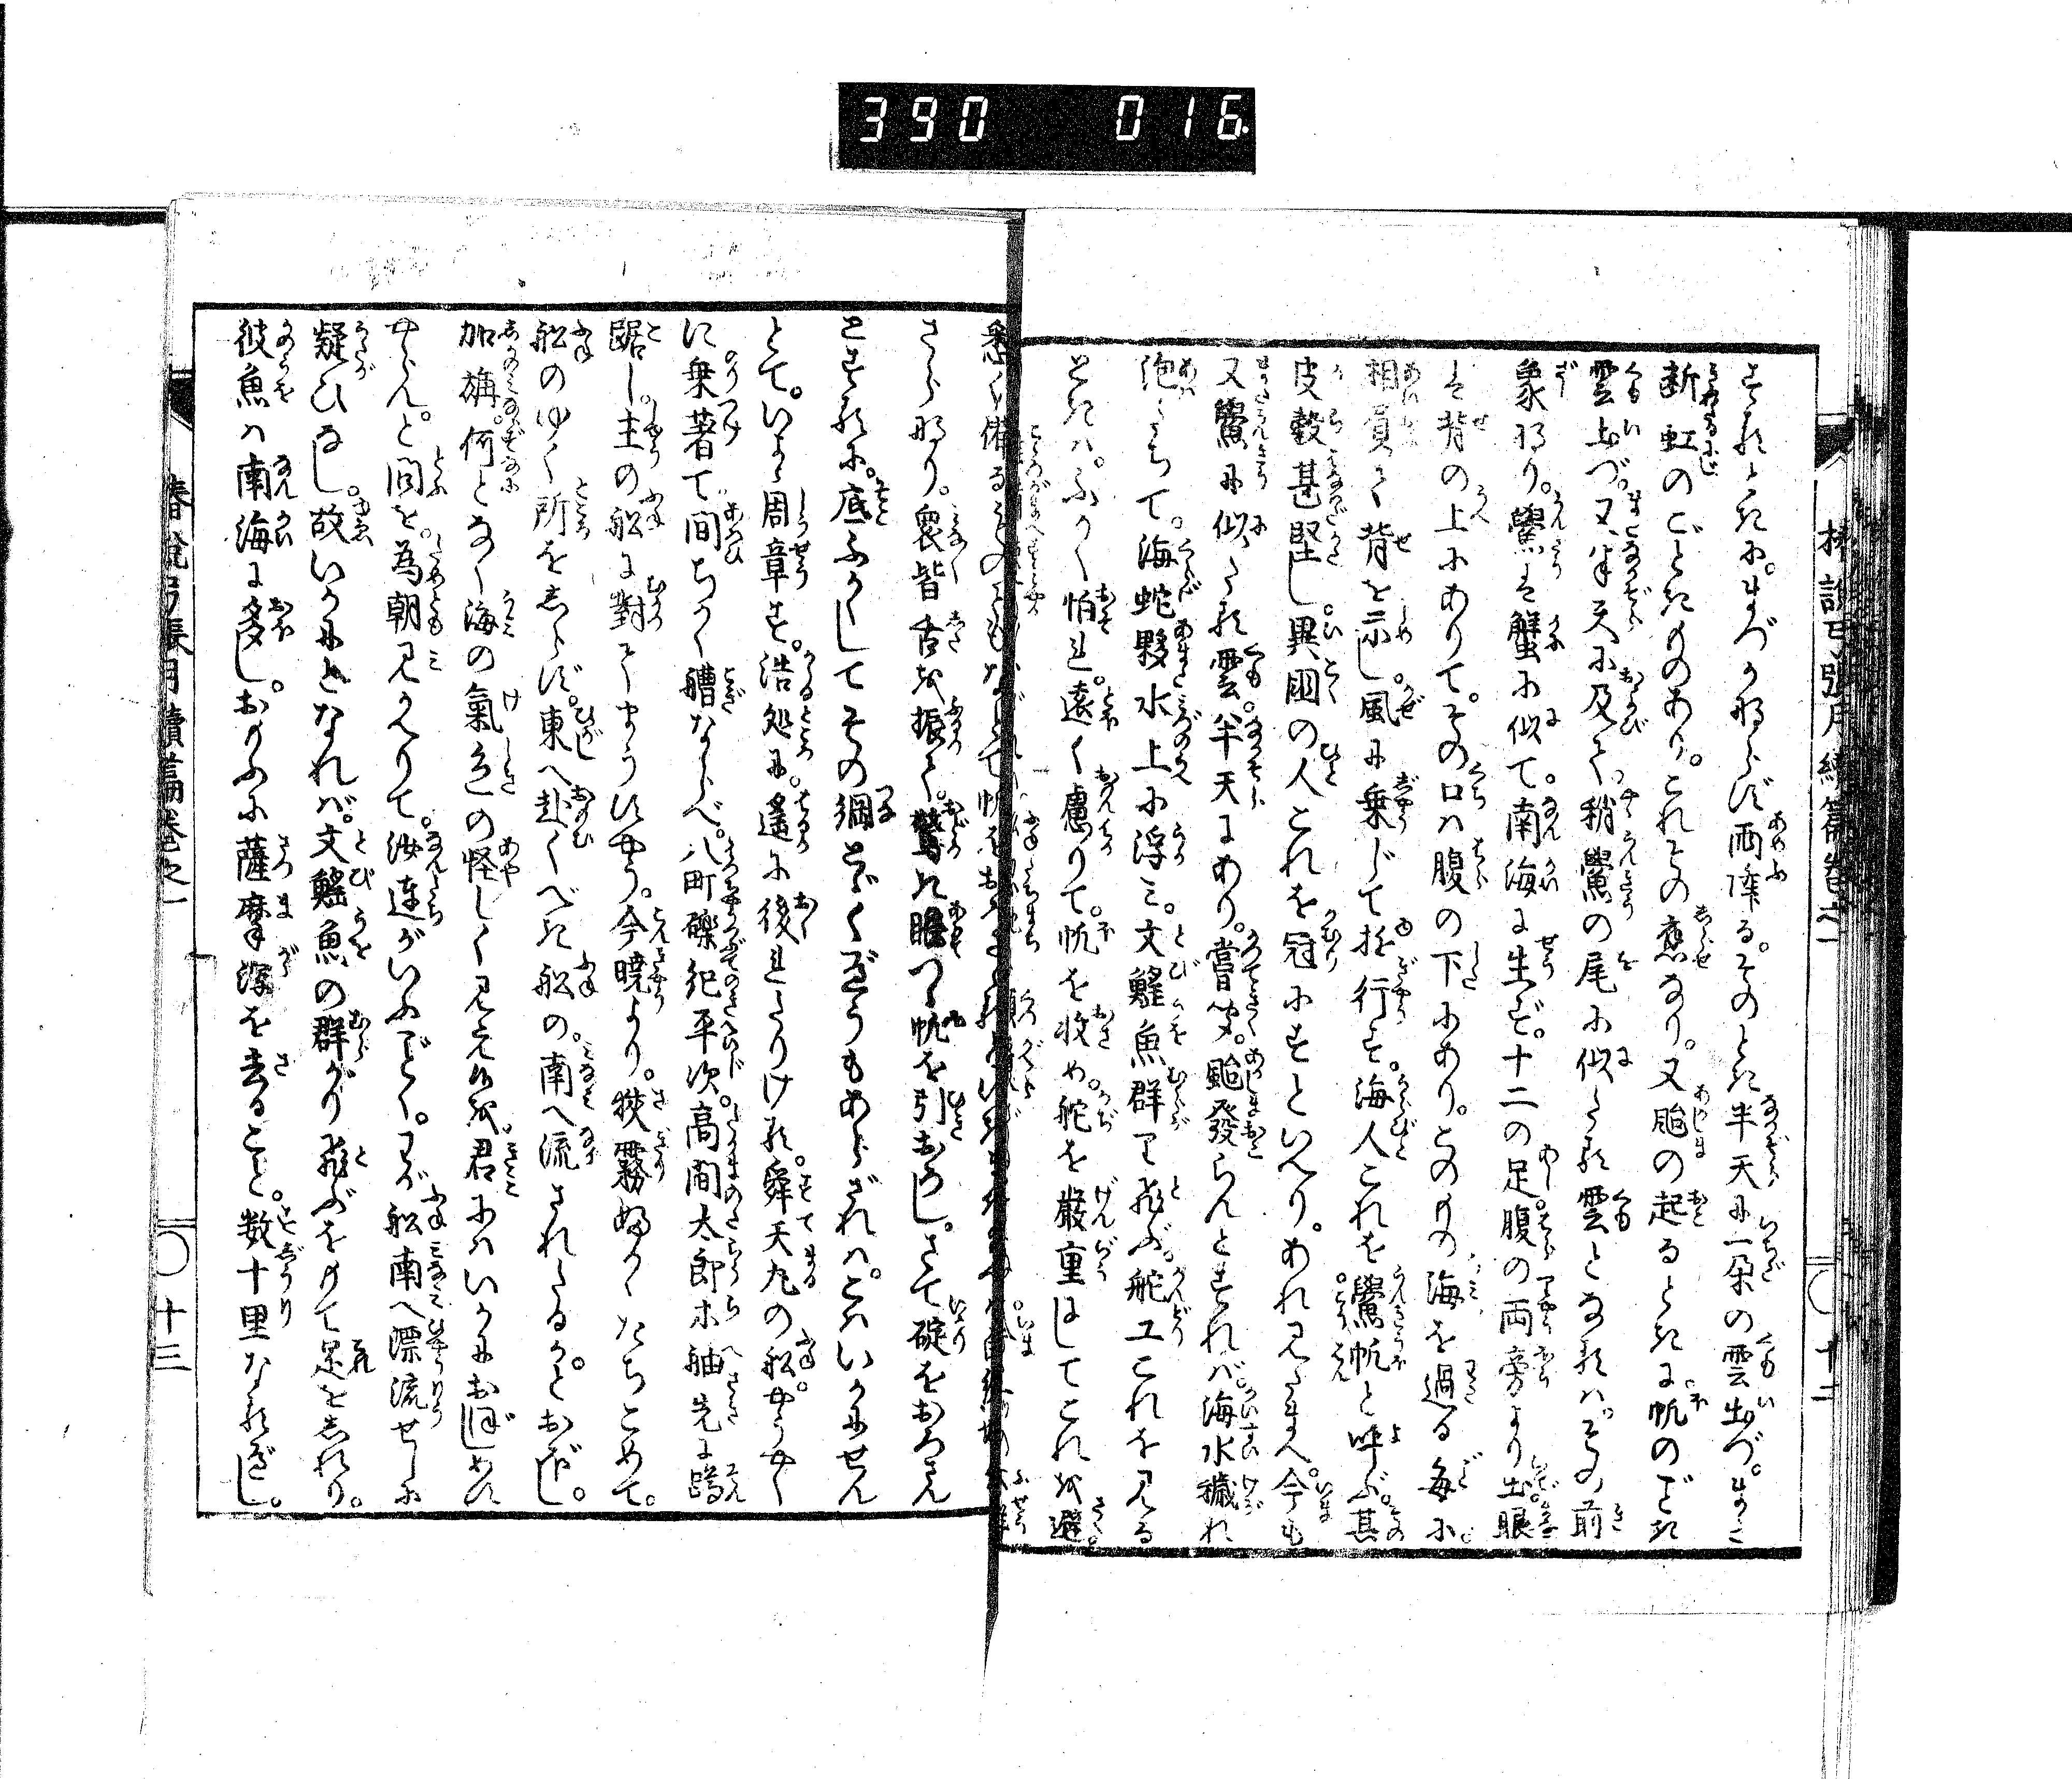 390 016
するときに。まづかならず雨降る。そのとき半天に一朶の雲出づ。まさに
断虹のごときものあり。これその應なり。又颶の起るときは帆のごとき
雲出づ。又半天に及て、稍鱟の尾に似たる雲となるは。その前
象なり。鱟は蟹に似て。南海に生ず。十二の足。腹の両旁より出。眼
は背の上にありて。その口は腹の下にあり。このもの海を過る毎に。
相負て背を示し。風に乗じて遊行す。海人これを鱟帆と呼ぶ。其
皮殻甚堅し。異國の人これを冠にすといへり。あれ見たまへ。今も
又鱟に似たる雲。半天にあり。嘗聞。颶發らんとすれば。海水穢れ
海蛇夥水上に浮み。文鰩魚群て飛ぶ。舵工これを見る
ときは。ふかく怕れ。遠く慮りて。帆を收め。舵を嚴重にしてこれを避。
さらなり。衆皆舌を振て。驚き瞻つゝ帆を引おろし。さて碇をおろさん
とするに。底ふかうしてその綱とゞくべうもあらざれば。こはいかにせん
とて。いよゝ周章す。浩処に。遙に後れたりける。舜天丸の舩。やうやく
に乗著て。間ちかく艚ならべ。八町礫紀平次。高間太郎ホ舳先に
踞し。主の舩に對ひてまうすやう。今暁より。狭霧ふかくたちこめて。
舩のゆく所をしらず。東へ赴くべき舩の。南へ流されたるかとおぼし。
加旃。何となく海の氣色の怪しく見え候を。君にはいかにおぼしめす
やらん。と問を。為朝見かへりて。汝達がいふごとく。わが舩南へ漂流せしに
疑ひなし。故いかにとなれば。文鰩魚の群がり飛ぶをもて是をしれり。
彼魚は南海に多し。おもふに薩摩潟を去ること。数十里なるべし。
椿説弓張月續篇巻之一
十三